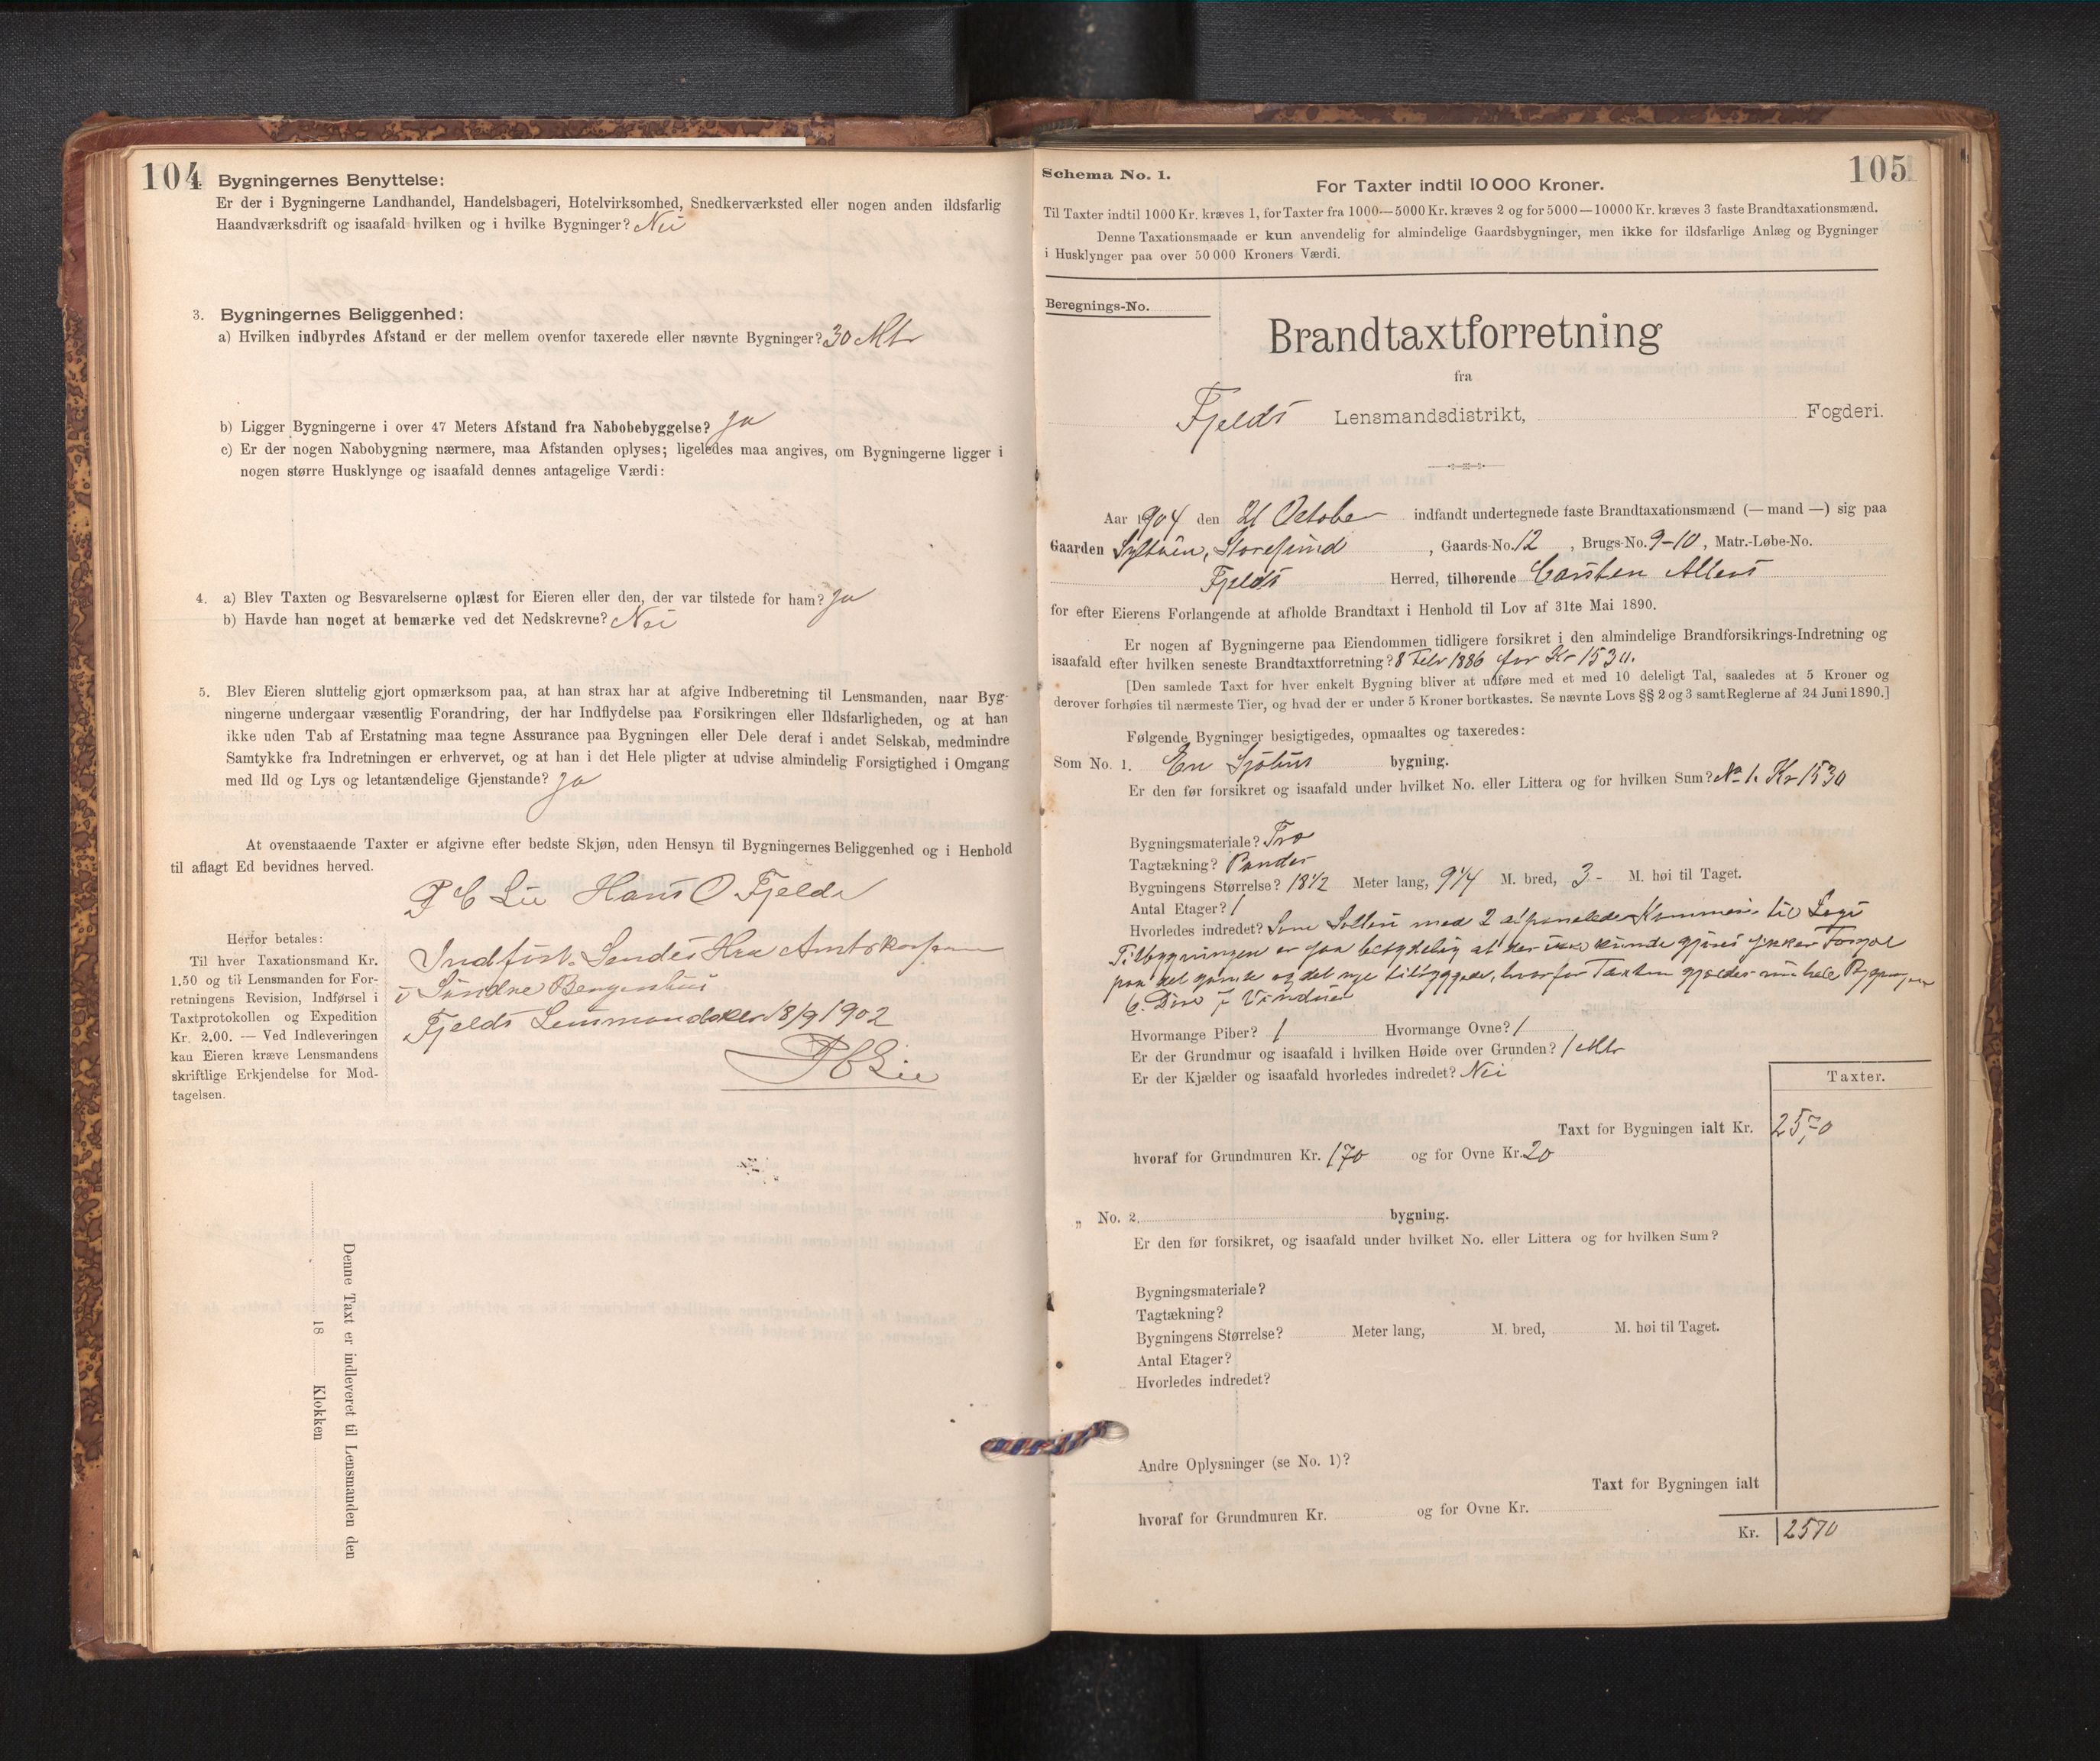 104
Bygningernes Benyttelse:
Er der i Bygningerne Landhandel, Handelsbageri, Hotelvirksomhed, Snedkerværksted eller nogen anden ildsfarlig
Haandværksdrift og isaafald hvilken og i hvilke Bygninger? Nei
3. Bygningernes Beliggenhed:
a) Hvilken indbyrdes Afstand er der mellem ovenfor taxerede eller nævnte Bygninger? 30 Mtr
b) Ligger Bygningerne i over 47 Meters Afstand fra Nabobebyggelse? Ja
c) Er der nogen Nabobygning nærmere, maa Afstanden oplyses; ligeledes maa angives, om Bygningerne ligger i
nogen større Husklynge og isaafald dennes antagelige Værdi:
4. a) Blev Taxten og Besvarelserne oplæst for Eieren eller den, der var tilstede for ham? Ja
b) Havde han noget at bemærke ved det Nedskrevne? Nei
5. Blev Eieren sluttelig gjort opmærksom paa, at han strax har at afgive Indberetning til Lensmanden, naar Byg-
ningerne undergaar væsentlig Forandring, der har Indflydelse paa Forsikringen eller Ildsfarligheden, og at han
ikke uden Tab af Erstatning maa tegne Assurance paa Bygningen eller Dele deraf i andet Selskab, medmindre
Samtykke fra Indretningen er erhvervet, og at han i det Hele pligter at udvise almindelig Forsigtighed i Omgang
med Ild og Lys og letantændelige Gjenstande? Ja
At ovenstaaende Taxter er afgivne efter bedste Skjøn, uden Hensyn til Bygningernes Beliggenhed og i Henhold
til aflagt Ed bevidnes herved.
P C Lie Hans O Fjelde
Herfor betales:
Til hver Taxationsmand Kr.
1.50 og til Lensmanden for For-
retningens Revision, Indførsel i
Taxtprotokollen og Expedition
Kr. 2.00. — Ved Indleveringen
kan Eieren kræve Lensmandens
skriftlige Erkjendelse for Mod-
tagelsen.
Indført. Sendes Hra Amtskasseren
i Søndre Bergenhus
Fjelds Lensmandsktr 18/9 1902
P C Lie
Denne Taxt er indleveret til Lensmanden den
18 Klokken
105
Schema No. 1.
For Taxter indtil 10 000 Kroner.
Til Taxter indtil 1000 Kr. kræves 1, for Taxter fra 1000—5000 Kr. kræves 2 og for 5000—10000 Kr. kræves 3 faste Brandtaxationsmænd.
Denne Taxationsmaade er kun anvendelig for almindelige Gaardsbygninger, men ikke for ildsfarlige Anlæg og Bygninger
i Husklynger paa over 50 000 Kroners Værdi.
Beregnings-No.
Brandtaxtforretning
fra
Fjelds Lensmandsdistrikt, Fogderi.
Aar 1904 den 21 October indfandt undertegnede faste Brandtaxationsmænd (— mand —) sig paa
Gaarden Syltøen, Storesund, Gaards-No. 12, Brugs-No. 9-10, Matr.-Løbe-No.
Fjelds Herred, tilhørende Carsten Allers
for efter Eierens Forlangende at afholde Brandtaxt i Henhold til Lov af 31te Mai 1890.
Er nogen af Bygningerne paa Eiendommen tidligere forsikret i den almindelige Brandforsikrings-Indretning og
isaafald efter hvilken seneste Brandtaxtforretning? 8 Febr 1886 for Kr 1530.
[Den samlede Taxt for hver enkelt Bygning bliver at udføre med et med 10 deleligt Tal, saaledes at 5 Kroner og
derover forhøies til nærmeste Tier, og hvad der er under 5 Kroner bortkastes. Se nævnte Lovs §§ 2 og 3 samt Reglerne af 24 Juni 1890.]
Følgende Bygninger besigtigedes, opmaaltes og taxeredes:
Som No. 1. En Sjöhus bygning.
Er den før forsikret og isaafald under hvilket No. eller Littera og for hvilken Sum? No 1. Kr 1530
Bygningsmateriale? Træ
Tagtækning? Pander
Bygningens Størrelse? 18 1/2 Meter lang, 9 1/4 M. bred, 3 - M. høi til Taget.
Antal Etager? 1
Hvorledes indredet? Som Salteri med 2 afpanelede Kammers til Logi
Tilbygningen er saa betydelig at der ikke kunde gjøres sikker Forskjel
paa det gamle og det nye tilbyggede, hvorfor Taxten gjælder den hele Bygning
6. Døre 7 Vinduer
Hvormange Piber? 1 Hvormange Ovne? 1
Er der Grundmur og isaafald i hvilken Høide over Grunden? 1 Mtr
Er der Kjælder og isaafald hvorledes indredet? Nei
Taxter.
Taxt for Bygningen ialt Kr. 2570
hvoraf for Grundmuren Kr. 170 og for Ovne Kr. 20
„ No. 2. bygning.
Er den før forsikret, og isaafald under hvilket No. eller Littera og for hvilken Sum?
Bygningsmateriale?
Tagtækning?
Bygningens Størrelse? Meter lang, M. bred, M. høi til Taget.
Antal Etager?
Hvorledes indredet?
Andre Oplysninger (se No. 1)?
Taxt for Bygningen ialt
hvoraf for Grundmuren Kr. og for Ovne Kr.
Kr. 2570